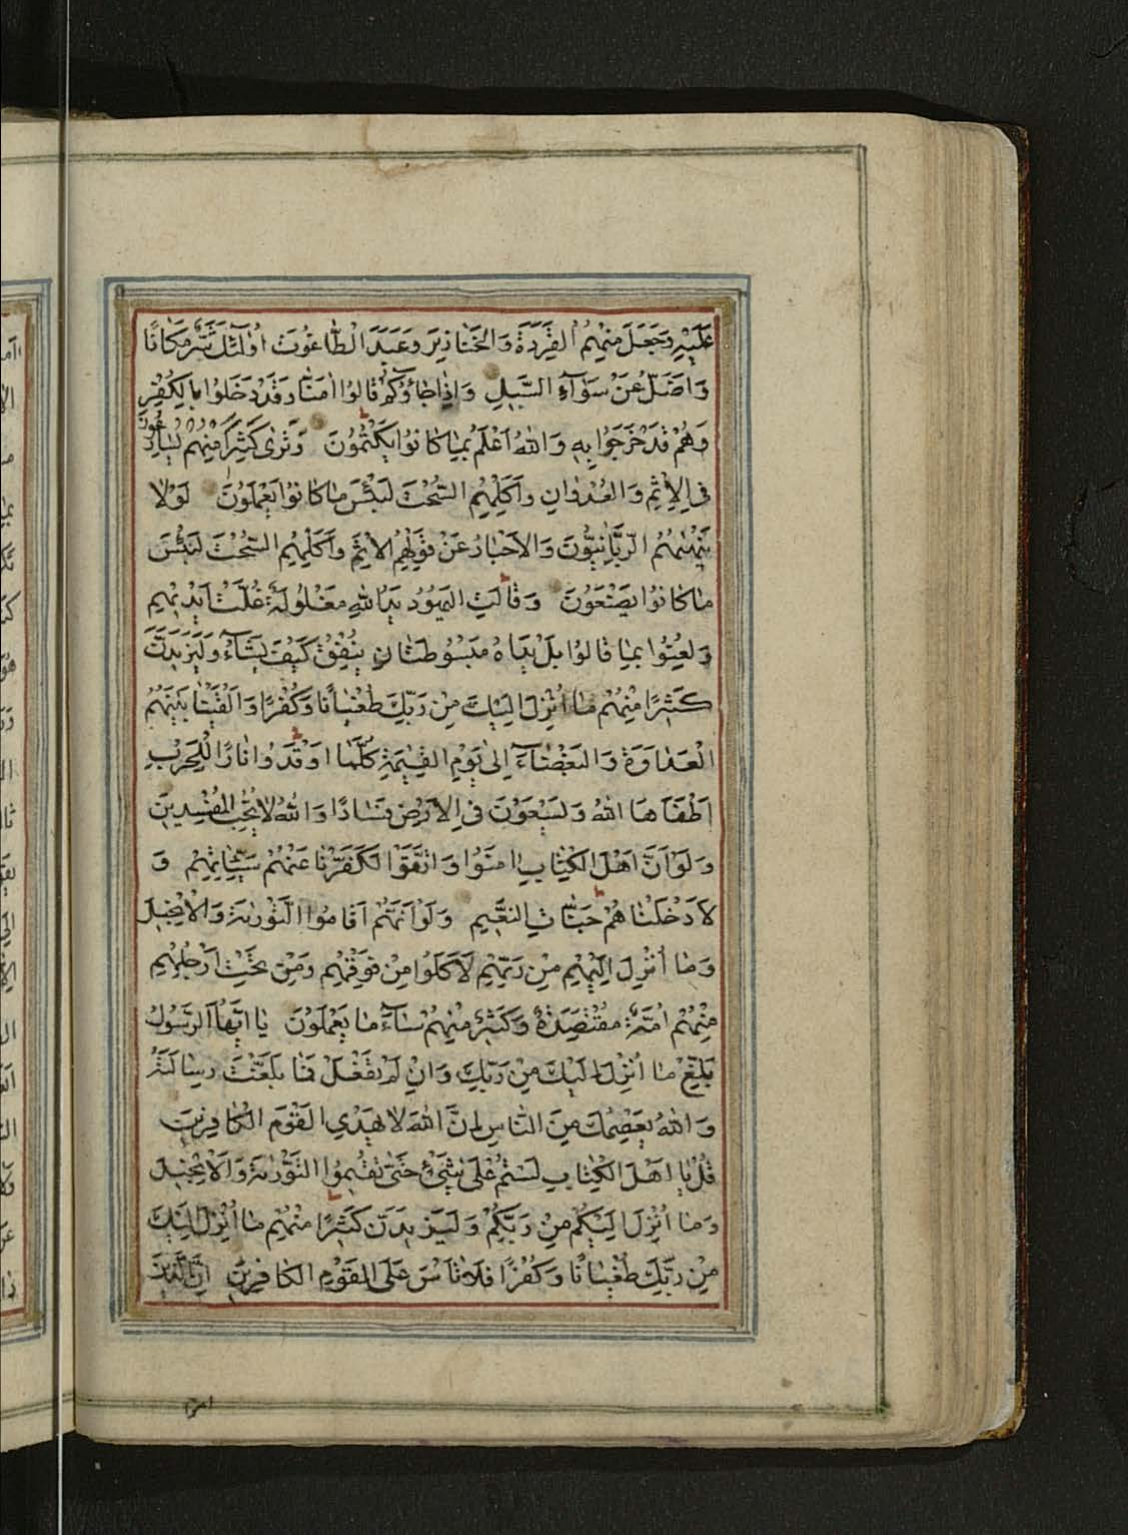 عَلَيْهِ وَجَعَلَ مِنْهُمُ الْقِرَدَةَ وَالْخَنَازِيرَ وَعَبَدَ الْطَّاغُوتَ اُولَٓئِكَ شَرٌّ مَكَانًا
وَاَضَلُّ عَنْ سَوَآءِ السَّبٖيلِ وَاِذَا جَاؤُكُمْ قَالُوا اٰمَنَّا وَقَدْ دَخَلُوا بِالْكُفْرِ
وَهُمْ قَدْ خَرَجُوا بِهٖ وَاللّٰهُ اَعْلَمُ بِمَا كَانُوا يَكْتُمُونَ وَتَرٰى كَثٖيرًا مِنْهُمْ يُسَارِعُونَ
فِى الْاِثْمِ وَالْعُدْوَانِ وَاَكْلِهِمُ السُّحْتَ لَبِئْسَ مَا كَانُوا يَعْمَلُونَ لَوْلَا
يَنْهٰيهُمُ الرَّبَّانِيُّونَ وَالْاَحْبَارُ عَنْ قَوْلِهِمُ الْاِثْمَ وَاَكْلِهِمُ السُّحْتَ لَبِئْسَ
مَا كَانُوا يَصْنَعُونَ وَقَالَتِ الْيَهُودُ يَدُ اللّٰهِ مَغْلُولَةٌ غُلَّتْ اَيْدٖيهِمْ
وَلُعِنُوا بِمَا قَالُوا بَلْ يَدَاهُ مَبْسُوطَتَانِ يُنْفِقُ كَيْفَ يَشَآءُ وَلَيَزٖيدَنَّ
كَثٖيرًا مِنْهُمْ مَا اُنْزِلَ اِلَيْكَ مِنْ رَبِّكَ طُغْيَانًا وَكُفْرًا وَاَلْقَيْنَا بَيْنَهُمُ
الْعَدَاوَةَ وَالْبَغْضَآءَ اِلٰى يَوْمِ الْقِيٰمَةِ كُلَّمَا اَوْقَدُوا نَارًا لِلْحَرْبِ
اَطْفَاَهَا اللّٰهُ وَيَسْعَوْنَ فِى الْاَرْضِ فَسَادًا وَاللّٰهُ لَا يُحِبُّ الْمُفْسِدٖينَ
وَلَوْ اَنَّ اَهْلَ الْكِتَابِ اٰمَنُوا وَاتَّقَوْا لَكَفَّرْنَا عَنْهُمْ سَيِّئَاتِهِمْ وَ
لَاَدْخَلْنَاهُمْ جَنَّاتِ النَّعٖيمِ وَلَوْ اَنَّهُمْ اَقَامُوا التَّوْرٰيةَ وَالْاِنْجٖيلَ
وَمَا اُنْزِلَ اِلَيْهِمْ مِنْ رَبِّهِمْ لَاَكَلُوا مِنْ فَوْقِهِمْ وَمِنْ تَحْتِ اَرْجُلِهِمْ
مِنْهُمْ اُمَّةٌ مُقْتَصِدَةٌ وَكَثٖيرٌ مِنْهُمْ سَآءَ مَا يَعْمَلُونَ يَا اَيُّهَا الرَّسُولُ
بَلِّغْ مَا اُنْزِلَ اِلَيْكَ مِنْ رَبِّكَ وَاِنْ لَمْ تَفْعَلْ فَمَا بَلَّغْتَ رِسَالَتَهُ
وَاللّٰهُ يَعْصِمُكَ مِنَ النَّاسِ اِنَّ اللّٰهَ لَا يَهْدِي الْقَوْمَ الْكَافِرٖينَ
قُلْ يَا اَهْلَ الْكِتَابِ لَسْتُمْ عَلٰى شَيْءٍ حَتّٰى تُقٖيمُوا التَّوْرٰيةَ وَالْاِنْجٖيلَ
وَمَا اُنْزِلَ اِلَيْكُمْ مِنْ رَبِّكُمْ وَلَيَزٖيدَنَّ كَثٖيرًا مِنْهُمْ مَا اُنْزِلَ اِلَيْكَ
مِنْ رَبِّكَ طُغْيَانًا وَكُفْرًا فَلَا تَاْسَ عَلَى الْقَوْمِ الْكَافِرٖينَ اِنَّ الَّذٖينَ